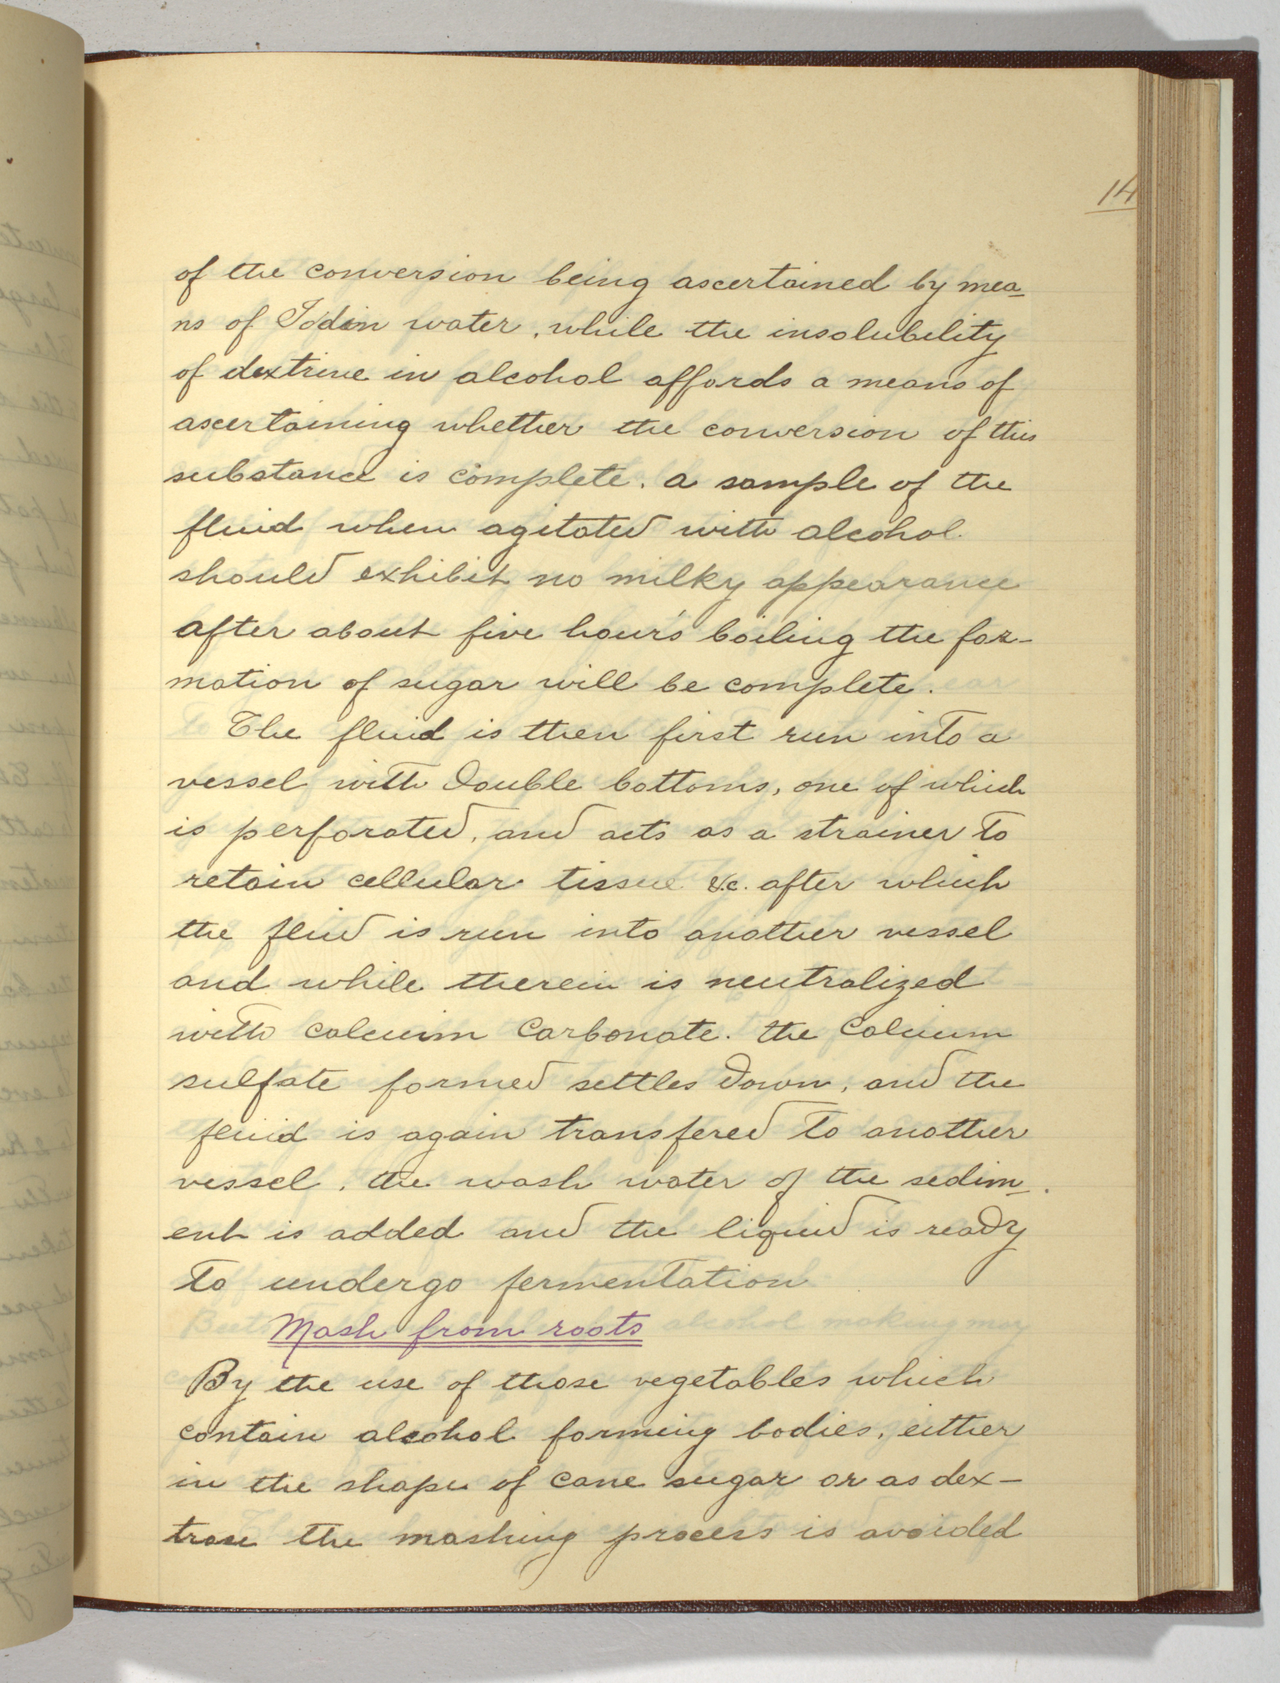 14
of the conversion being ascertained by mea-
ns of Iodin water, while the insolubility
of dextrine in alcohol affords a means of
ascertaining whether the conversion of this
substance is complete. a sample of the
fluid when agitated with alcohol.
should exhibit no milky appearance
after about five hour's boiling the for-
mation of sugar will be complete.
The fluid is then first run into a
vessel with double bottoms, one of which
is perforated, and acts as a strainer to
retain cellular tissue &c. after which
the fluid is run into another vessel
and while therein is neutralized
with calcium carbonate. the calcium
sulfate formed settles down, and the
fluid is again transfered to another
vessel, the wash water of the sedim-
ent is added and the liquid is ready
to undergo fermentation
Mash from roots
By the use of those vegetables which
contain alcohol forming bodies, either
in the shape of cane sugar or as dex-
trose the mashing process is avoided